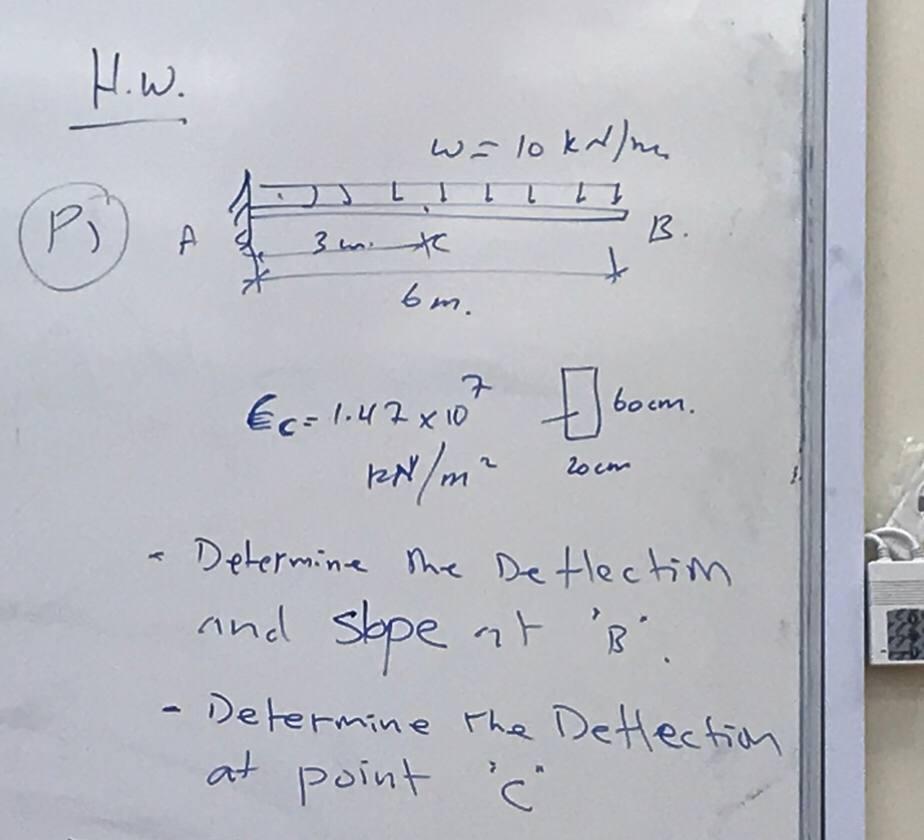 H.W.
w = 10 kN/m
P1
A
B.
3 m.
C
6 m.
Ec = 1.47 x 10^7
kN/m²
60 cm.
20 cm
- Determine the Deflection
and slope at "B".
- Determine the Deflection
at point "C"